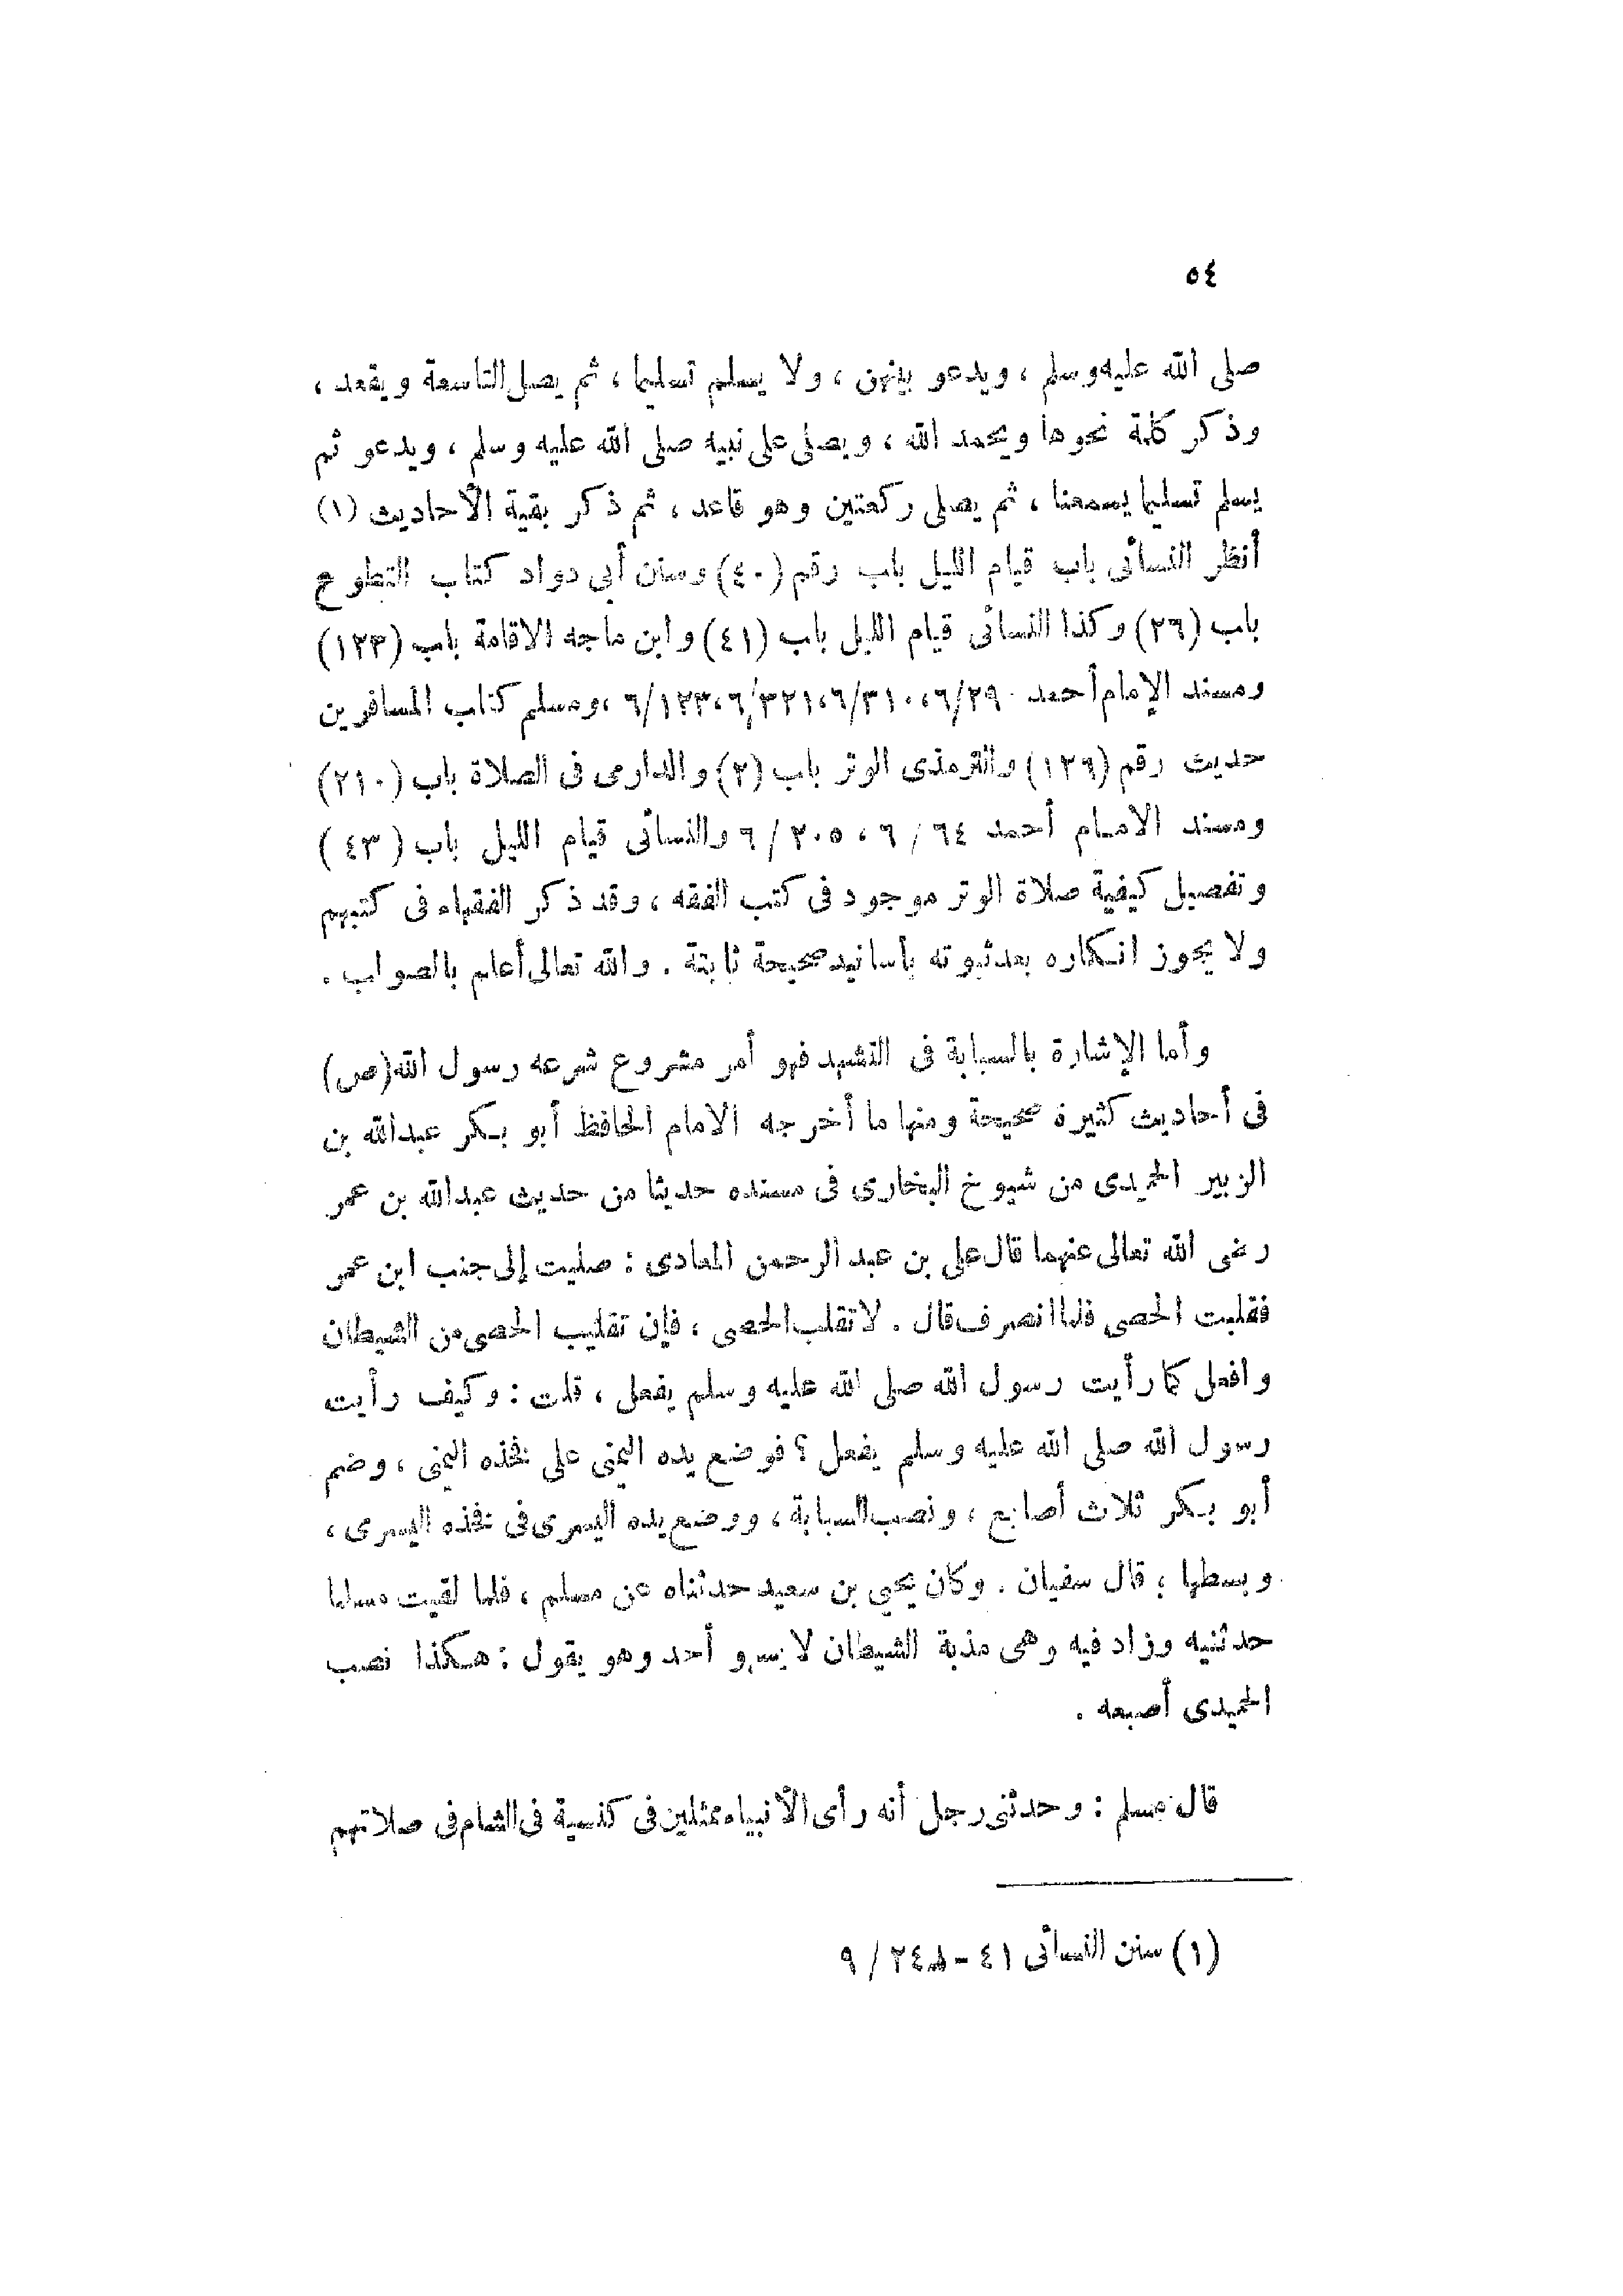 ٥٤
صلى الله عليه وسلم ، ويدعو بينهن ، ولا يسلم تسليما ، ثم يصل التاسعة ويقعد ،
وذكر كلمة نحوها ويحمد الله ، ويصلى على نبيه صلى الله عليه وسلم ، ويدعو ثم
يسلم تسليما يسمعنا ، ثم يصلى ركعتين وهو قاعد ، ثم ذكر بقية الأحاديث (١)
أنظر النسائى باب قيام الليل باب رقم (٤٠) وسنن أبى دواد كتاب التطوع
باب (٢٦) وكذا النسائى قيام الليل باب (٤١) وابن ماجه الاقامة باب (١٢٣)
ومسند الإمام أحمد ٦/٢٩ ،٦/٣١٠ ،٦/٣٢١ ،٦/١٢٣ ، ومسلم كتاب المسافرين
حديث رقم (١٣٩) والترمذى الوتر باب (٢) والدارمى فى الصلاة باب (٢١٠)
ومسند الامام أحمد ٦٤ / ٦ ، ٢٠٥ / ٦ والنسائى قيام الليل باب (٤٣)
وتفصيل كيفية صلاة الوتر موجود فى كتب الفقه ، وقد ذكر الفقهاء فى كتبهم
ولا يجوز انكاره بعد ثبوته بأسانيد صحيحة ثابتة . والله تعالى أعلم بالصواب .
وأما الإشارة بالسبابة فى التشهد فهو أمر مشروع شرعه رسول الله (ص)
فى أحاديث كثيرة صحيحة ومنها ما أخرجه الامام الحافظ أبو بكر عبدالله بن
الزبير الحميدى من شيوخ البخارى فى مسنده حديثا من حديث عبدالله بن عمر
رضى الله تعالى عنهما قال على بن عبد الرحمن المعادى : صليت إلى جنب ابن عمر
فقلبت الحصى فلما انصرف قال . لا تقلب الحصى ، فإن تقليب الحصى من الشيطان
وافعل كما رأيت رسول الله صلى الله عليه وسلم يفعل ، قلت : وكيف رأيت
رسول الله صلى الله عليه وسلم يفعل ؟ فوضع يده اليمنى على فخذه اليمنى ، وضم
أبو بكر ثلاث أصابع ، ونصب السبابة ، ووضع يده اليسرى فى فخذه اليسرى ،
وبسطها ؛ قال سفيان . وكان يحي بن سعيد حدثناه عن مسلم ، فلما لقيت مسلما
حدثنيه وزاد فيه وهى مذبة الشيطان لا يسهو أحد وهو يقول : هكذا نصب
الحميدى أصبعه .
قال مسلم : وحدثنى رجل أنه رأى الأنبياء ممثلين فى كنيسة فى الشام فى صلاتهم
(١) سنن النسائى ٤١ - ٢٤٨ / ٩